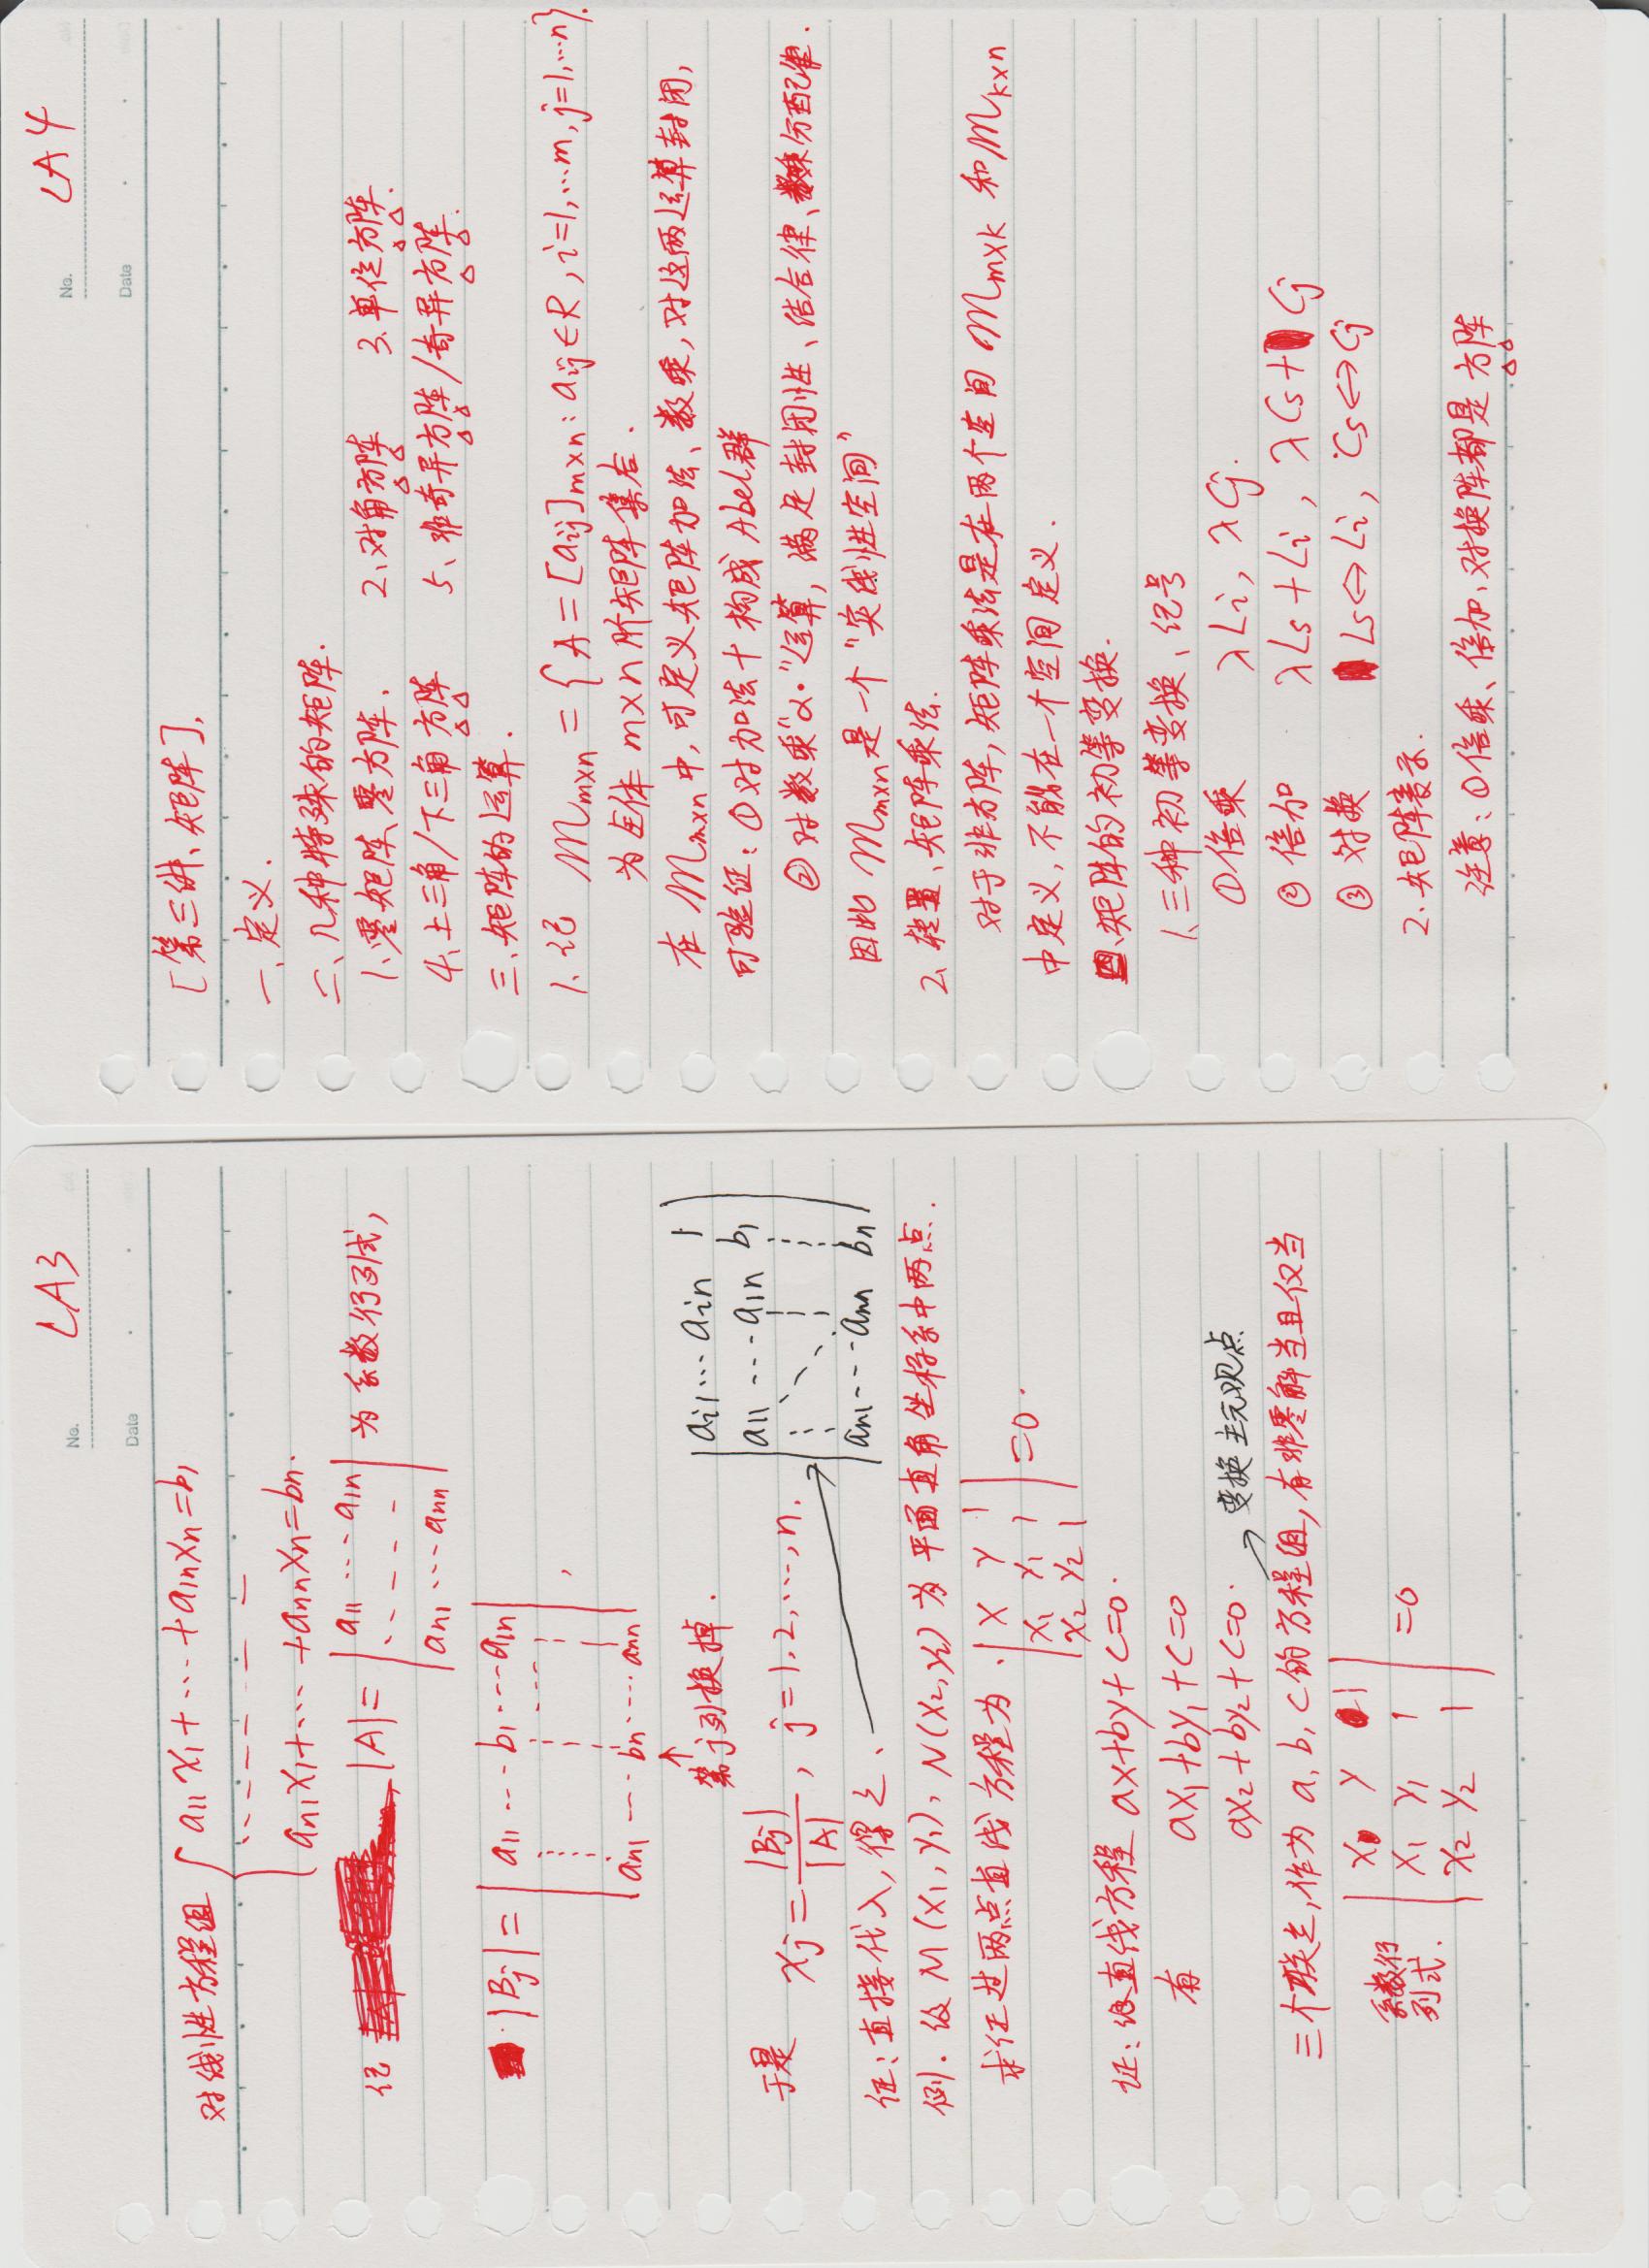 No. LA3
Date
对线性方程组 { a₁₁x₁+⋯+a₁ₙxₙ=b₁
- - - - - -
aₙ₁x₁+⋯+aₙₙxₙ=bₙ.
记 |A|= | a₁₁ ⋯ a₁ₙ | 为系数行列式,
- - - - -
aₙ₁ ⋯ aₙₙ
|Bⱼ|= | a₁₁ ⋯ b₁ ⋯ a₁ₙ |
,
aₙ₁ ⋯ bₙ ⋯ aₙₙ
↑
第j列换掉.
aᵢ₁ ⋯ aᵢₙ 1
a₁₁ ⋯ a₁ₙ b₁
aₙ₁ ⋯ aₙₙ bₙ
于是 xⱼ = |Bⱼ| / |A| , j=1,2,⋯,n.
证:直接代入,得之、
例. 设 M(x₁,y₁), N(x₂,y₂) 为平面直角坐标系中两点.
求证过两点直线方程为 | x y 1 |
x₁ y₁ 1 =0.
x₂ y₂ 1
证:设直线方程 ax+by+c=0.
有 ax₁+by₁+c=0
ax₂+by₂+c=0. → 变换主元观点
三个联立,作为 a, b, c 的方程组,有非零解当且仅当
系数行列式. | x y 1 |
x₁ y₁ 1 =0
x₂ y₂ 1
No. LA4
Date
[第三讲、矩阵].
一、定义.
二、几种特殊的矩阵.
1、零矩阵、零方阵. 2、对角方阵 3、单位方阵.
4、上三角/下三角方阵 5、非奇异方阵/奇异方阵.
三、矩阵的运算.
1、记 Mₘₓₙ = { A = [aᵢⱼ]ₘₓₙ : aᵢⱼ∈R, i=1,⋯m, j=1,⋯n}.
为全体 m×n 阶矩阵集合.
在 Mₘₓₙ 中,可定义矩阵加法、数乘,对这两运算封闭,
可验证:①对加法+构成 Abel群
②对数乘“α·”运算,满足封闭性、结合律、分配律.
因此 Mₘₓₙ 是一个“实线性空间”
2、转置、矩阵乘法.
对于非方阵,矩阵乘法是在两个空间 Mₘₓₖ 和 Mₖₓₙ
中定义,不能在一个空间定义.
四、矩阵的初等变换.
1、三种初等变换、记号
①倍乘 λLᵢ, λCⱼ.
②倍加 λLₛ+Lᵢ, λCₛ+Cⱼ
③对换 Lₛ⇔Lᵢ, Cₛ⇔Cⱼ
2、矩阵表示.
注意:①倍乘、倍加、对换阵都是方阵